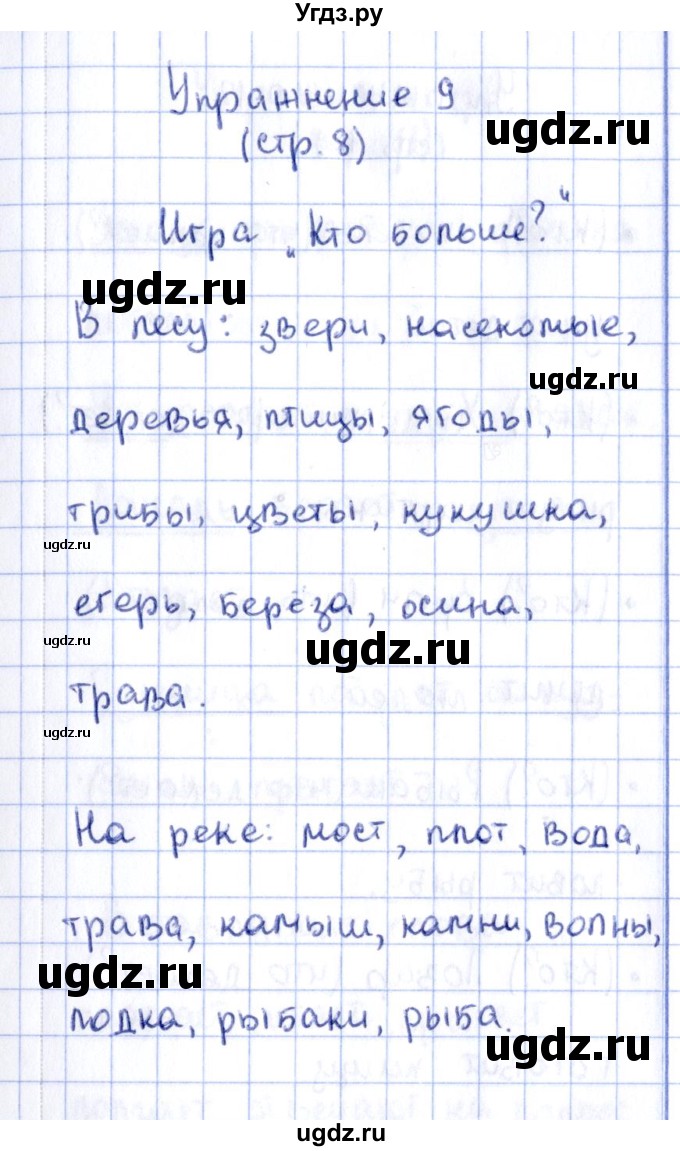 Угдз.ру
Упражнение 9
ugdz.ru
(стр. 8)
Игра „Кто больше?"
ugdz.ru
В лесу: звери, насекомые,
ugdz.ru
деревья, птицы, ягоды,
грибы, цветы, кукушка,
ugdz.ru
егерь, берёза, осина,
ugdz.ru
трава.
ugdz.ru
На реке: мост, плот, вода,
трава, камыш, камни, волны,
ugdz.ru
лодка, рыбаки, рыба.
ugdz.ru
ugdz.ru